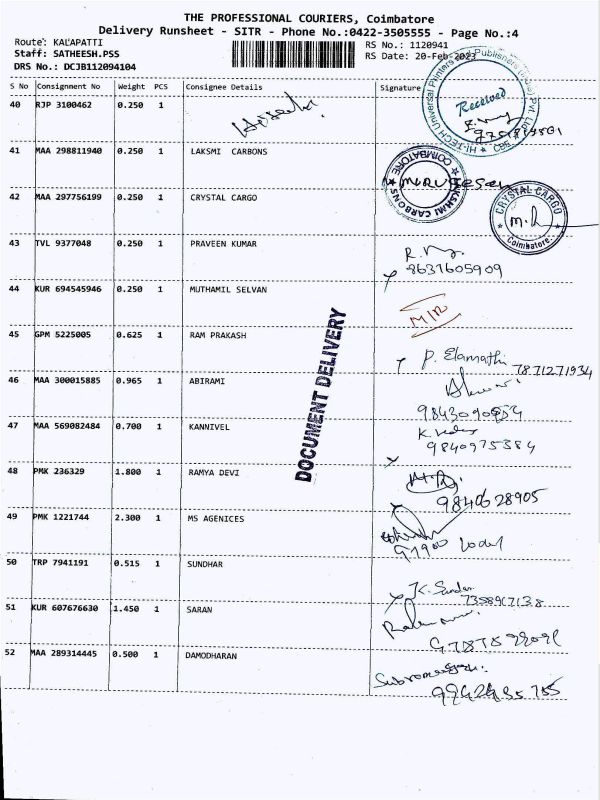 THE PROFESSIONAL COURIERS, Coimbatore
Delivery Runsheet - SITR - Phone No.:0422-3505555 - Page No.:4
Route: KALAPATTI
RS No.: 1120941
Staff: SATHEESH.PSS
RS Date: 20-Feb-2023
DRS No.: DCJB112094104
S No Consignment No Weight PCS Consignee Details Signature
40 RJP 3100462 0.250 1
HI-TECH Universal Printers and Publishers (India) Pvt. Ltd. CBE
Received
41 MAA 298811940 0.250 1 LAKSMI CARBONS
LAKSHMI CARBONS COIMBATORE
MURUGESAN
42 MAA 297756199 0.250 1 CRYSTAL CARGO
CRYSTAL CARGO
M.R
Coimbatore.
43 TVL 9377048 0.250 1 PRAVEEN KUMAR
8637605909
44 KUR 694545946 0.250 1 MUTHAMIL SELVAN
M/R
45 GPM 5225005 0.625 1 RAM PRAKASH
P. Elamathi
7871271934
46 MAA 300015885 0.965 1 ABIRAMI
47 MAA 569082484 0.700 1 KANNIVEL
9840975384
48 PMK 236329 1.800 1 RAMYA DEVI
9840628905
49 PMK 1221744 2.300 1 MS AGENICES
50 TRP 7941191 0.515 1 SUNDHAR
K. Sundar
7358917138
51 KUR 607676630 1.450 1 SARAN
52 MAA 289314445 0.500 1 DAMODHARAN
DOCUMENT DELIVERY